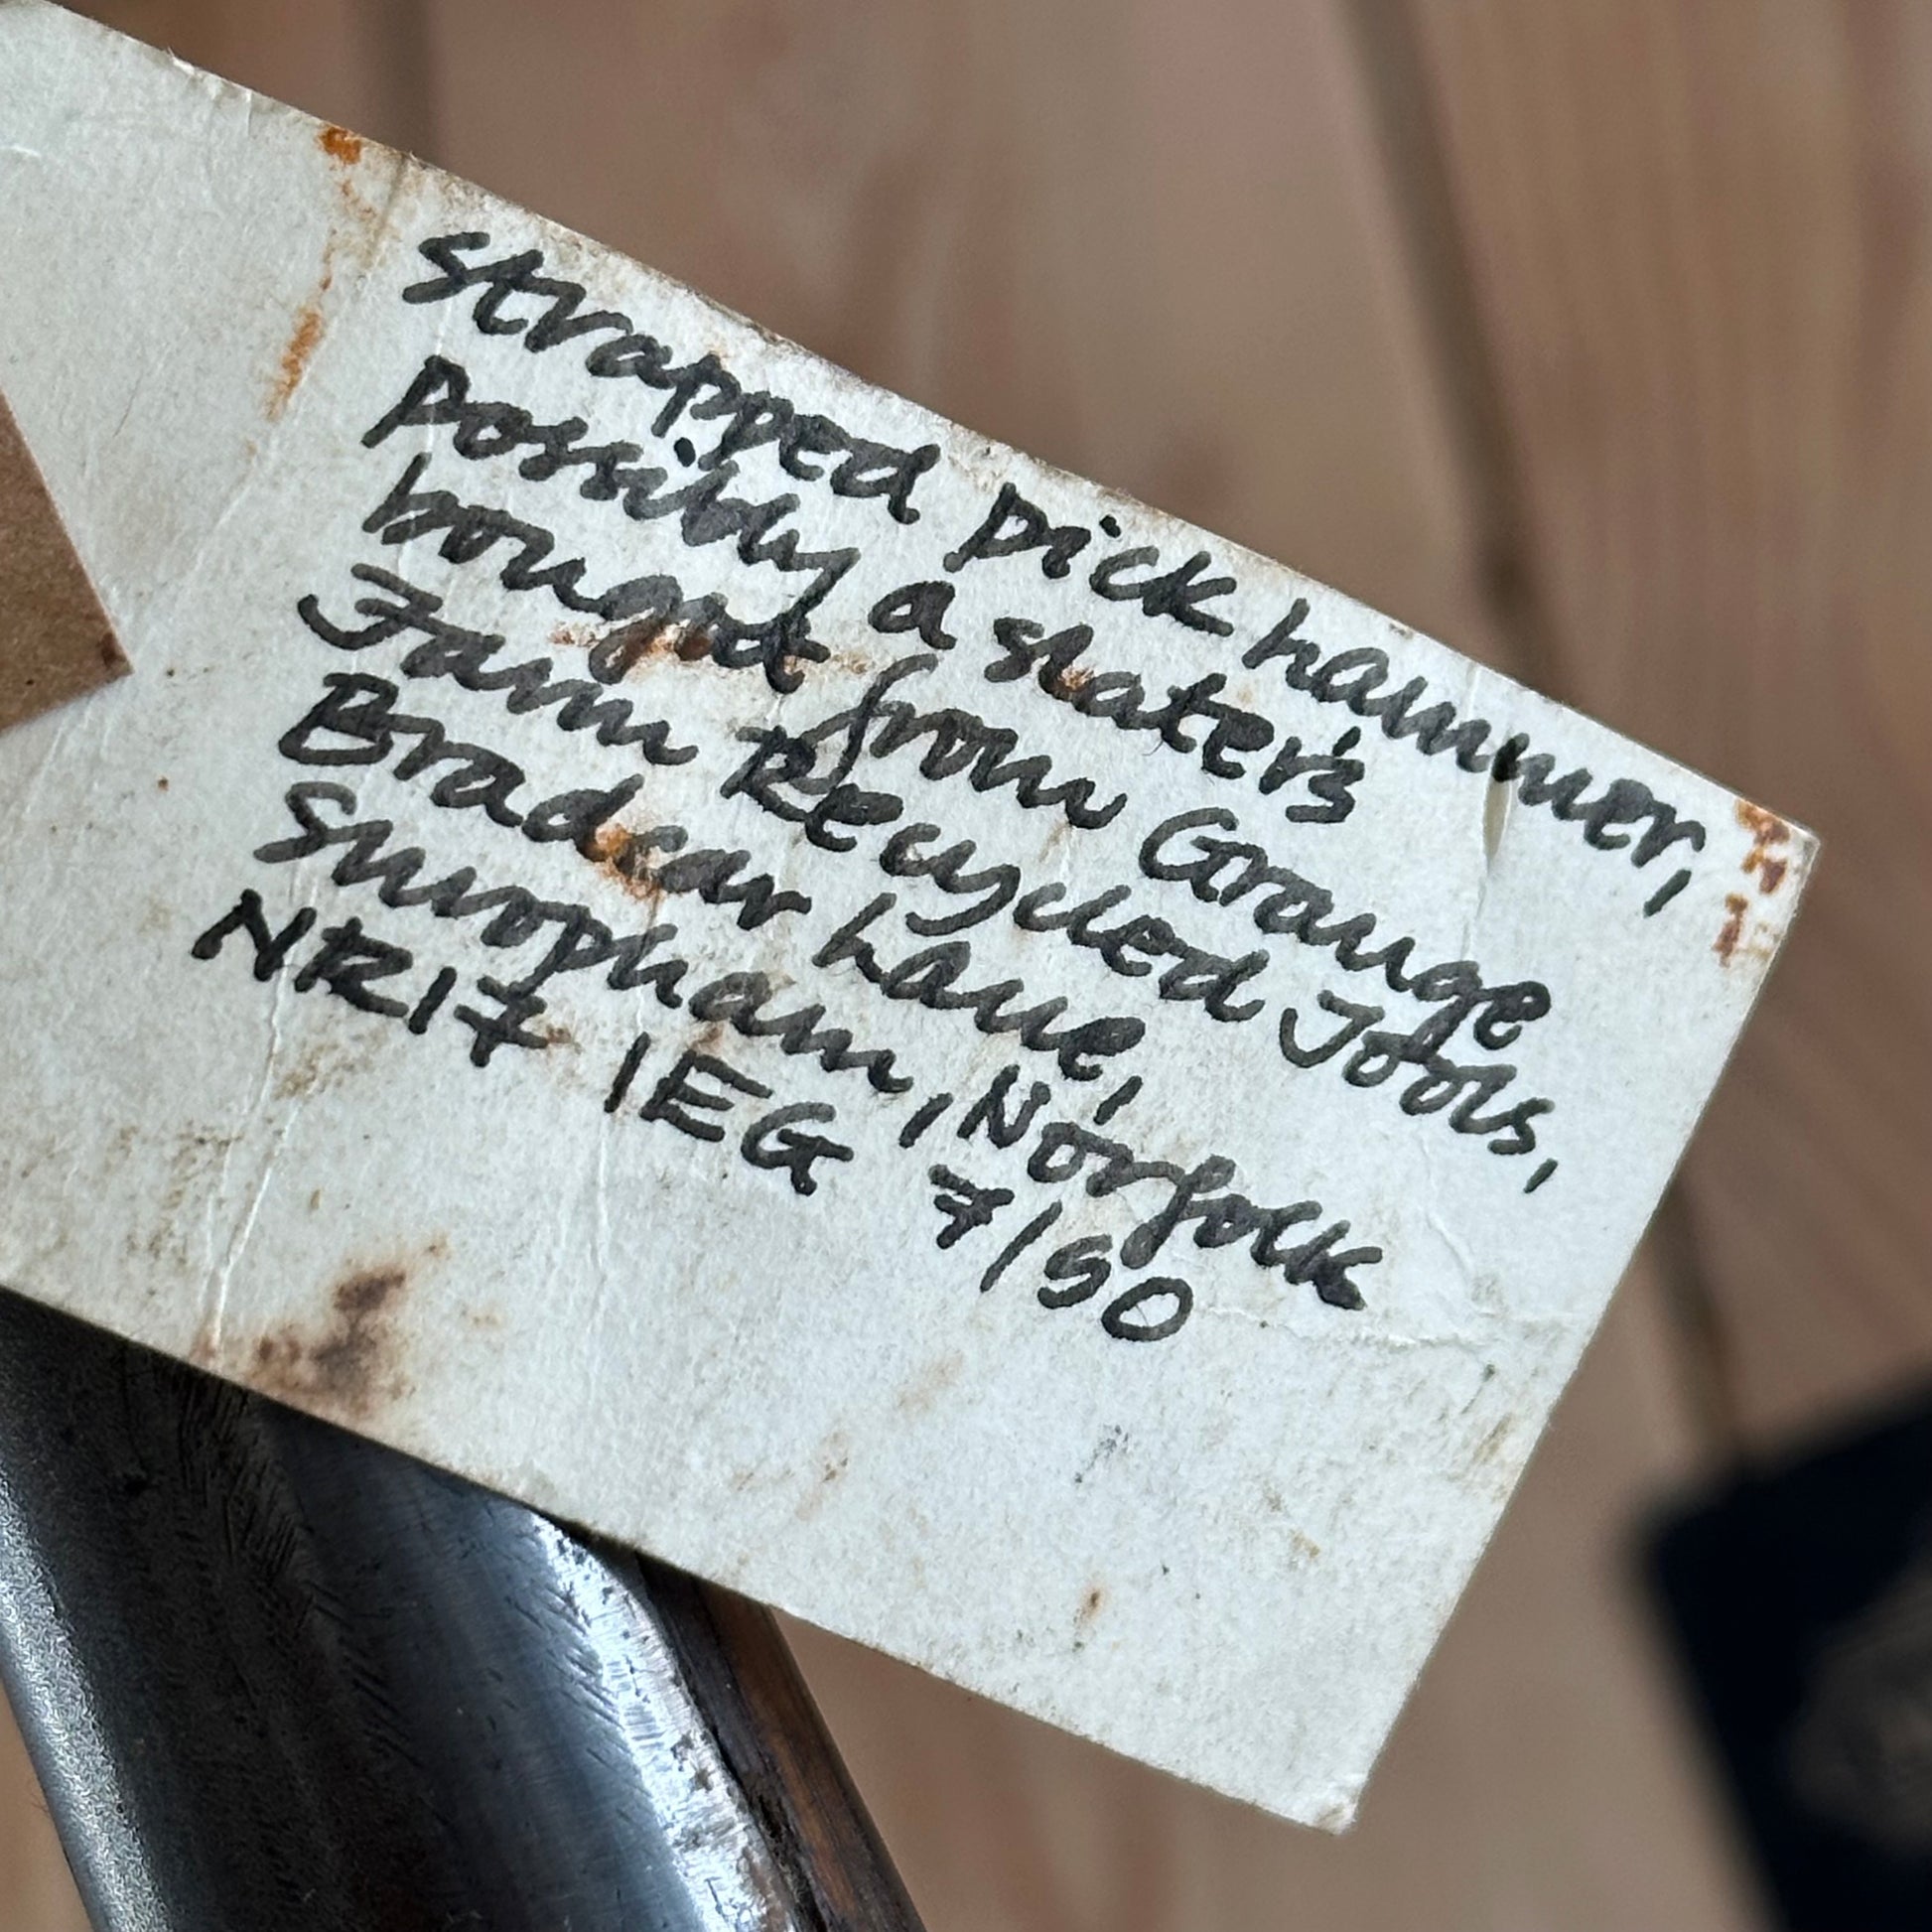 Strapped pick hammer,
Possibly a slater's
bought from Grange
Farm Recycled Tools,
Bradcar Lane,
Shropham, Norfolk
NR17 1EG 7/50